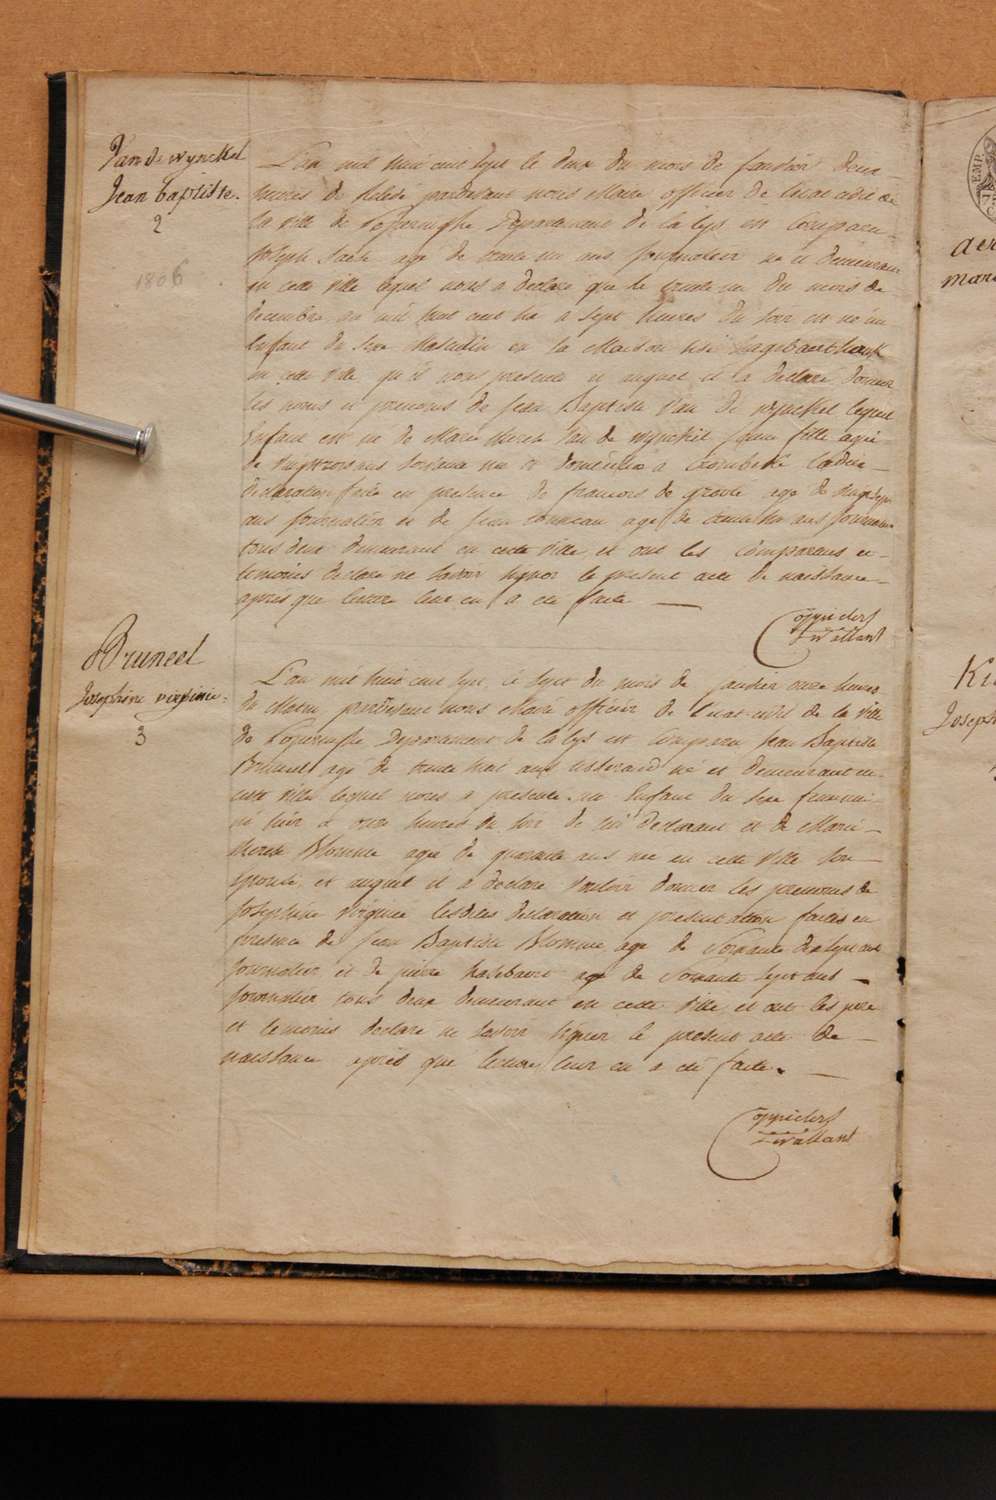 Van de Wynckel
Jean baptiste.
2
1806
L'an mil huit cent sept le deux du mois de janvier deux
heures de relevé pardevant nous Maire officier de l'etat civil de
la ville de Poperinghe Departement de la Lys est comparu
Joseph age de trente un ans journalier né et demeurant
en cette ville lequel nous a declaré que le trente un du mois de
decembre an mil huit cent six a sept heures du soir est né un
Enfant du sexe Masculin en la Maison
en cette ville qu'il nous presente et auquel il a declaré donner
les noms et prenoms de Jean Baptiste Van de wynckel lequel
Enfant est né de Marie therese Van de wynckel jeune fille agée
de vingt trois ans née et domiciliée a Crombeke
declaration faite en presence de francois de groote age de vingt sept
ans journalier et de Jean age de trente six ans journalier
tous deux demeurant en cette ville, et ont les comparans et
temoins declaré ne savoir signer le present acte de naissance
après que lecture leur en a été faite
Bruneel
Josephine virginie
3
L'an mil huit cent sept, le sept du mois de janvier onze heures
du Matin pardevant nous Maire officier de l'etat civil de la ville
de Poperinghe Departement de la Lys est comparu Jean Baptiste
Bruneel agé de trente huit ans né et demeurant en
cette ville lequel nous a presenté un Enfant du sexe feminin
né hier à onze heures du soir de lui declarant et de Marie
therese Blomme agée de quarante ans née en cette ville son
epouse, et auquel il a declaré vouloir donner les prenoms de
Josephine virginie lesdites declaration et presentation faites en
presence de Jean Baptiste Blomme age de soixante dix sept ans
journalier et de pierre age de soixante sept ans
journalier tous deux demeurant en cette ville et ont les pere
et temoins declaré ne savoir signer le present acte de
naissance après que lecture leur en a été faite.
Kie
Joseph
EMP